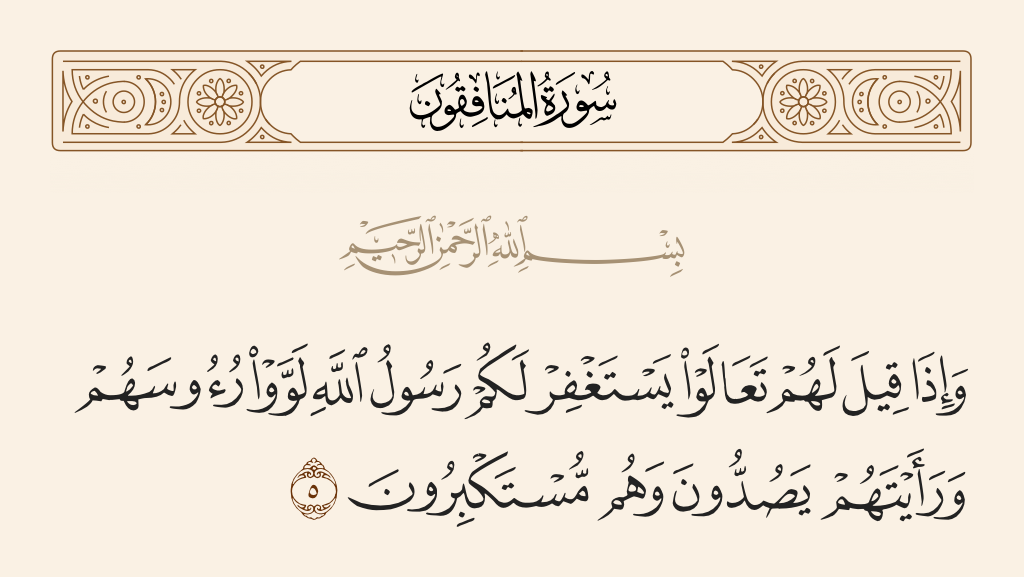 سُورَةُ المُنَافِقُونَ
بِسْمِ ٱللَّهِ ٱلرَّحْمَٰنِ ٱلرَّحِيمِ
وَإِذَا قِيلَ لَهُمْ تَعَالَوْا۟ يَسْتَغْفِرْ لَكُمْ رَسُولُ ٱللَّهِ لَوَّوْا۟ رُءُوسَهُمْ
وَرَأَيْتَهُمْ يَصُدُّونَ وَهُم مُّسْتَكْبِرُونَ ٥